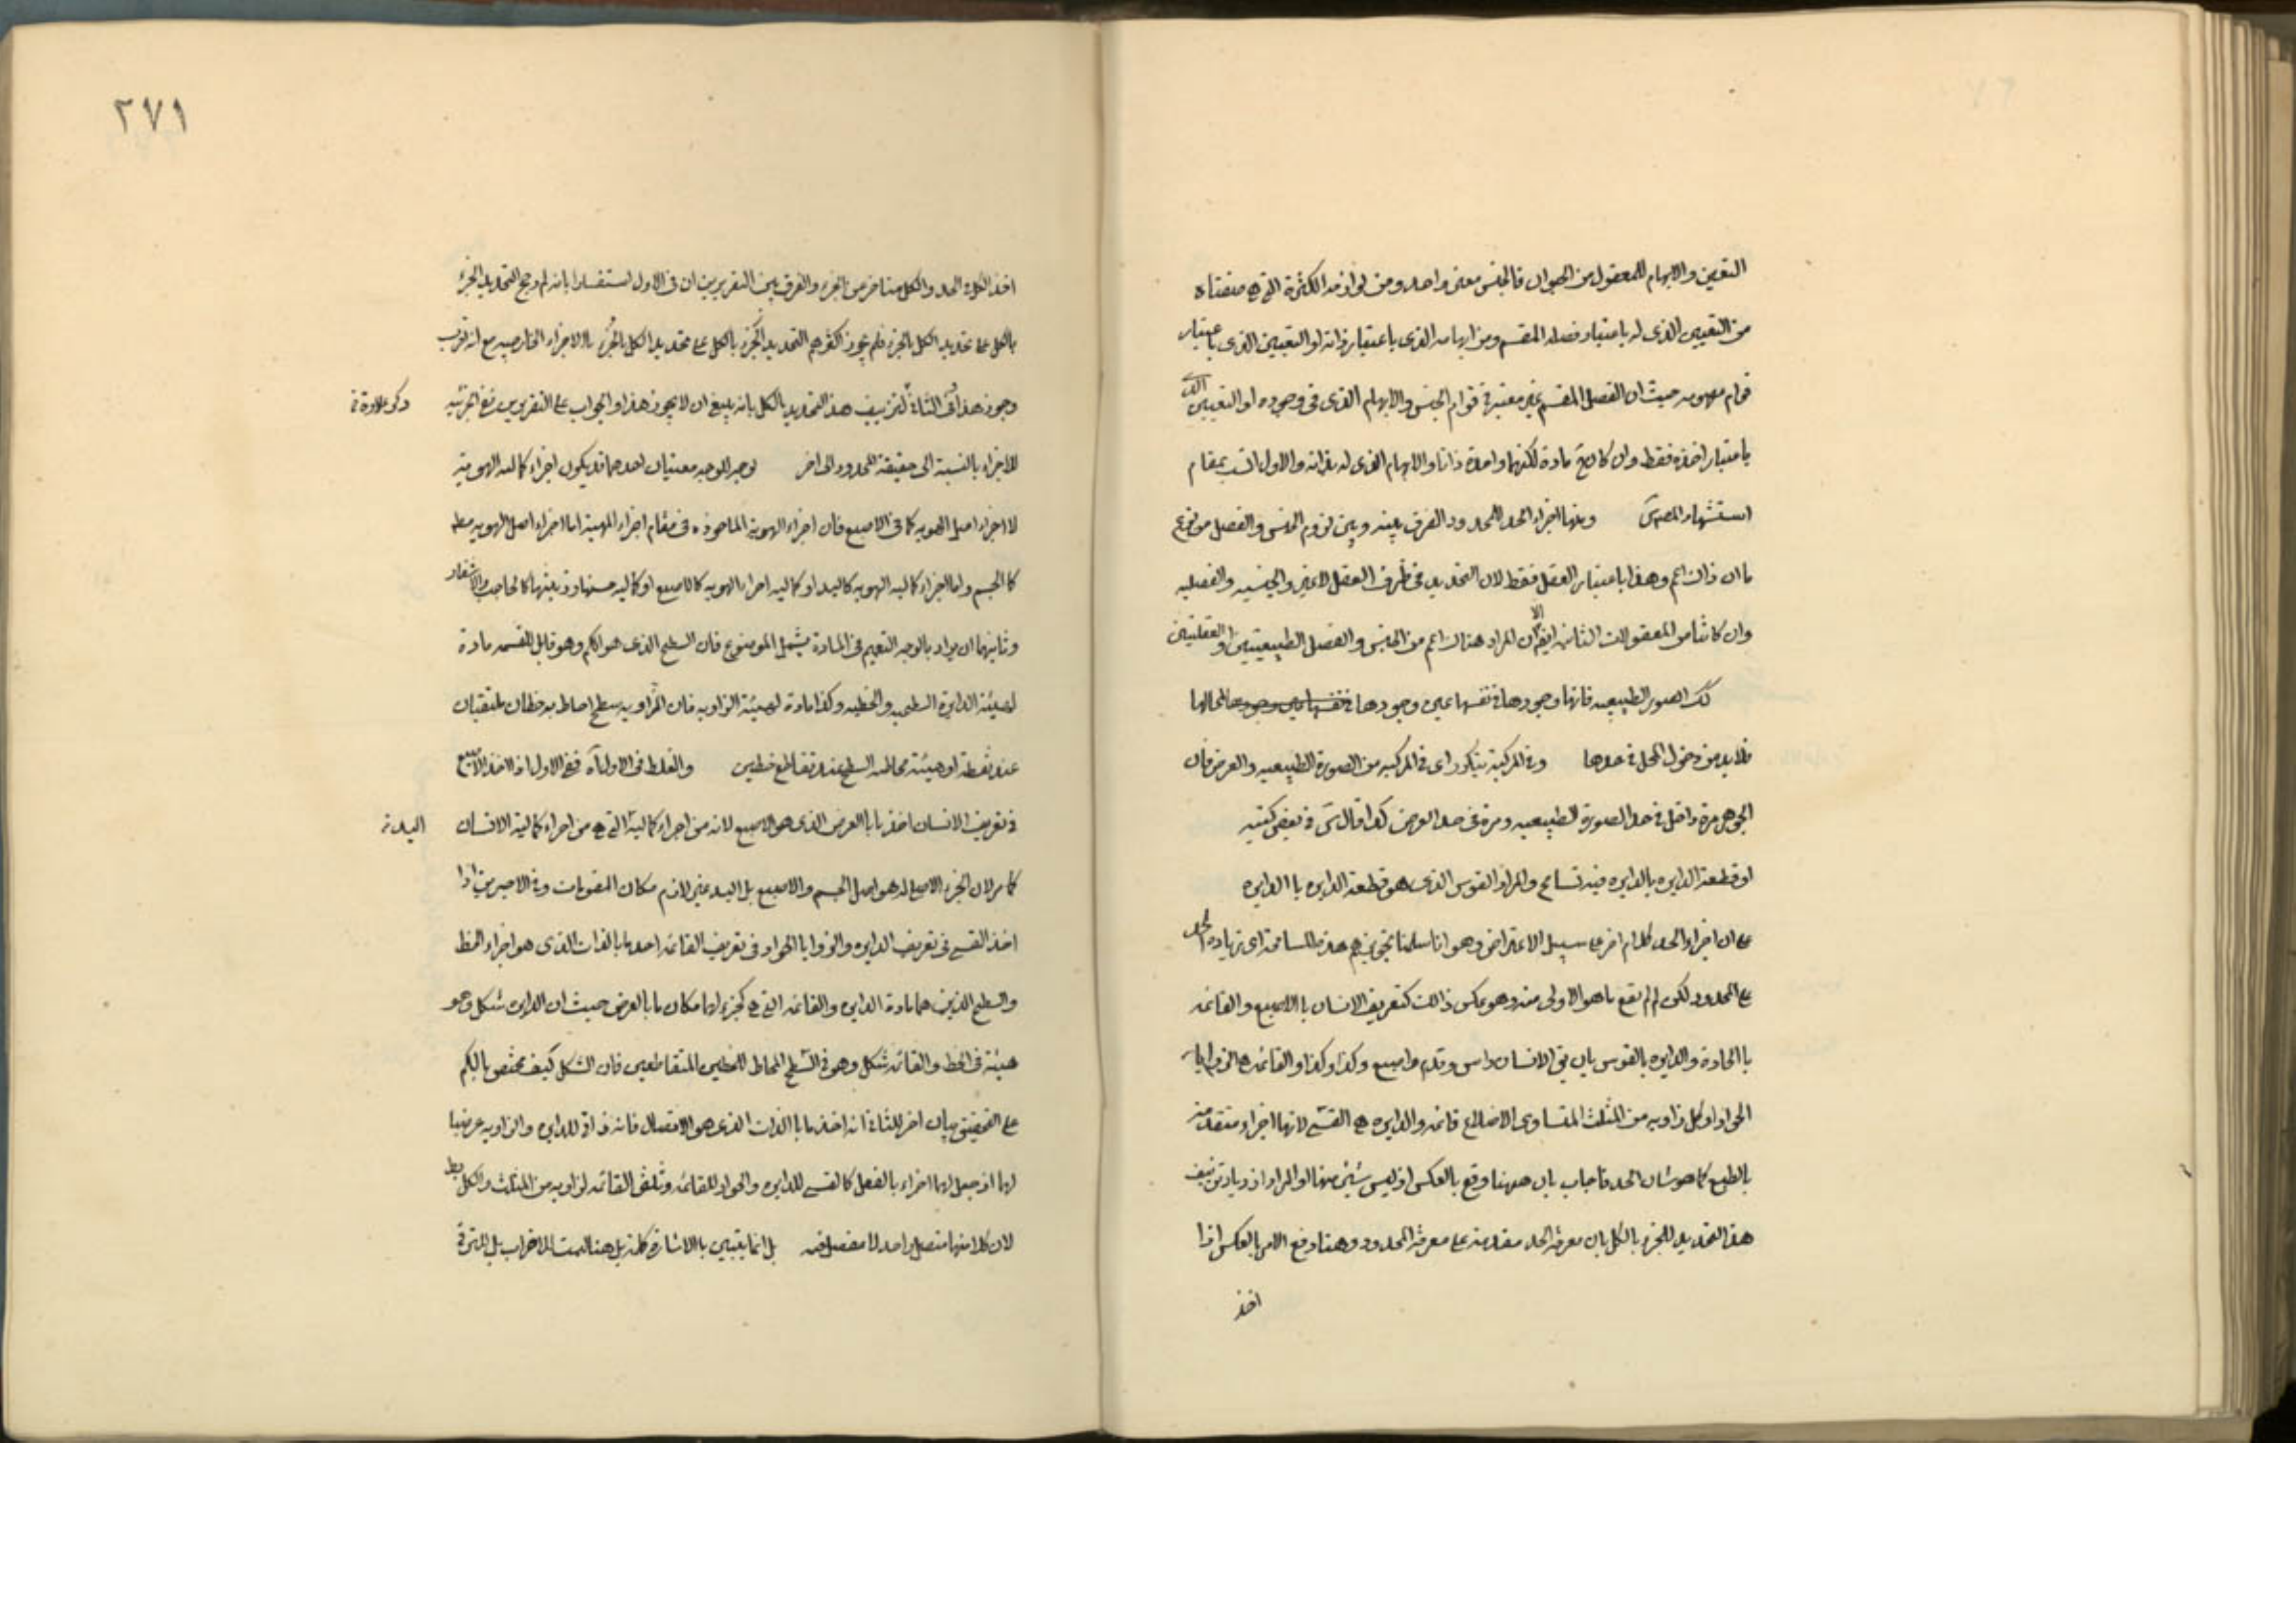 التعين والابهام للمعقول من الحيوان فالجنس معنى واحد ومن لوازمه الكثرة التى هى منشاه
من التعيين الذى له باعتبار فصله المقسم ومن ابهامه الذى باعتبار ذاته او التعيين الذى باعتبار
قوام مفهومه حيث ان الفصل المقسم غير معتبر فى قوام الجنس والابهام الذى فى وجوده او التعيين الذى
باعتبار اخذه فقط وان كا مادة لكنهما واحدة ذاتا والابهام الذى له بذاته والاول انسب بمقام
استشهاد المص ومنها اجزاء الحد للمحدود الفرق بينه وبين لزوم الجنس والفصل من نوع
ما ان ذاك اعم وهذا باعتبار العقل فقط لان التحديد فى ظرف العقل لا غير والجنسيه والفصليه
وان كانتا من المعقولات الثانيه ايضا الا ان المراد هناك اعم من الجنس والفصل الطبيعيتين والعقليتين
الصور الطبيعيه فانها وجودها فى نفسها عين وجودها لمحالها
فلا بد من دخول المحل فى حدها وفى المركبة يتكرر اى فى المركب من الصورة الطبيعيه والعرض فان
الجوهر مرة داخل فى حد الصورة الطبيعيه ومرة فى حد العرض كذا قال فى بعض كتبه
او قطعة الدايره بالدايره فيه تسامح والمراد القوس الذى هو قطعة الدايره با الدايره
على ان اجزاء الحد كلام اخر على سبيل الاعتراض وهو انا سلمنا تجويزهم هذه المسامحة اى زيادة الحد
على المحدود لكن لم لم يقع ما هو الاولى منه وهو عكس ذلك كتعريف الانسان با الاصبع والقائمه
با الحادة والدايره بالقوس بان يق الانسان راس وقدم واصبع وكذا وكذا والقائمه هى الزوايا
الحواد او كل زاويه من المثلث المتساوى الاضلاع قائمه والدايره هى القسى لانها اجزاء متقدمة
بالطبع كما هو شان الحد فاجاب بان ههنا وقع بالعكس اذ ليس شيئ منها او المراد ازدياد تزييف
هذا التحديد للجزء بالكل بان معرفة الحد مقدمة على معرفة المحدود وهنا وقع الامر بالعكس اذا
اخذ
٢٧١
اخذ الكل فى الحد والكل متاخر من الجزء والفرق بين التقريرين ان فى الاول استفسارا بانه لم رجح التحديد الجزء
بالكل على تحديد الكل بالجزء فلم يجوز اكثرهم التحديد الجزء بالكل على تحديد الكل بالجزء با الاجزاء الخارجيه مع انه قريب
وجوز هذا وفى الثانى تزييف هذا التحديد بالكل بانه ينبغى ان لا يجوز هذا والجواب على التقريرين رفع الجزئيه
للاجزاء بالنسبة الى حقيقة المحدود الى اخر بوجه للوجه معنيان احدهما قد يكون اجزاء كماليه الهويه
لا اجزاء اصل الهويه كما فى الاصبع فان اجزاء الهوية الماخوذه فى مقام اجزاء المهية اما اجزاء اصل الهويه مط
كا الجسم واما اجزاء كماليه الهويه كاليد او كماليه اجزاء الهويه كالاصبع او كماليه حسنها وزينتها كالحاجب والاشفار
وثانيهما ان يراد بالوجه التعميم فى المادة يشمل الموضوع فان السطح الذى هو الكم وهو قابل للقسمه مادة
لهيئة الدايرة السطحيه والخطيه وكذا مادة لهيئة الزاويه فان الزاويه سطح احاط به خطان ملتقيان
عند نقطة او هيئة محاطيه السطح عند تقاطع خطين والغلط فى الاول اه ففى الاول اذ الاخذ الاصبع
فى تعريف الانسان اخذ ما با العرض الذى هو الاصبع لانه من اجزاء كماليه التى هى من اجزاء كماليه الانسان
كا مر لان الجزء الاصلى له هو اصل الجسم والاصبع بل اليد غير لازم مكان المقومات وفى الاخيرين اذا
اخذ القسى فى تعريف الدايره والزوايا الحواد فى تعريف القائمه اخذ ما بالذات الذى هو اجزاء الخط
والسطح الذين هما مادة الدايره والقائمه التى هى كجزء لها مكان ما بالعرض حيث ان الدايره شكل وهو
هيئة فى الخط والقائمه شكل وهو فى السطح المحاط للخطين المتقاطعين فان الشكل كيف مختص بالكم
على التحقيق بيان اخر للثانى انه اخذ ما با الذات الذى هو الاتصال فانه ذاتى للدايره والزاويه عرضيا
لها اذ جعل لها اجزاء بالفعل كا القسى للدايره والحواد للقائمه وثلثى القائمه لزاويه من المثلث والكل بط
لان كلا منها متصل واحد لا مفصل فيه بل انما يتبين با الاشارة كلمة بل هنا ليست للاضراب بل للترقى